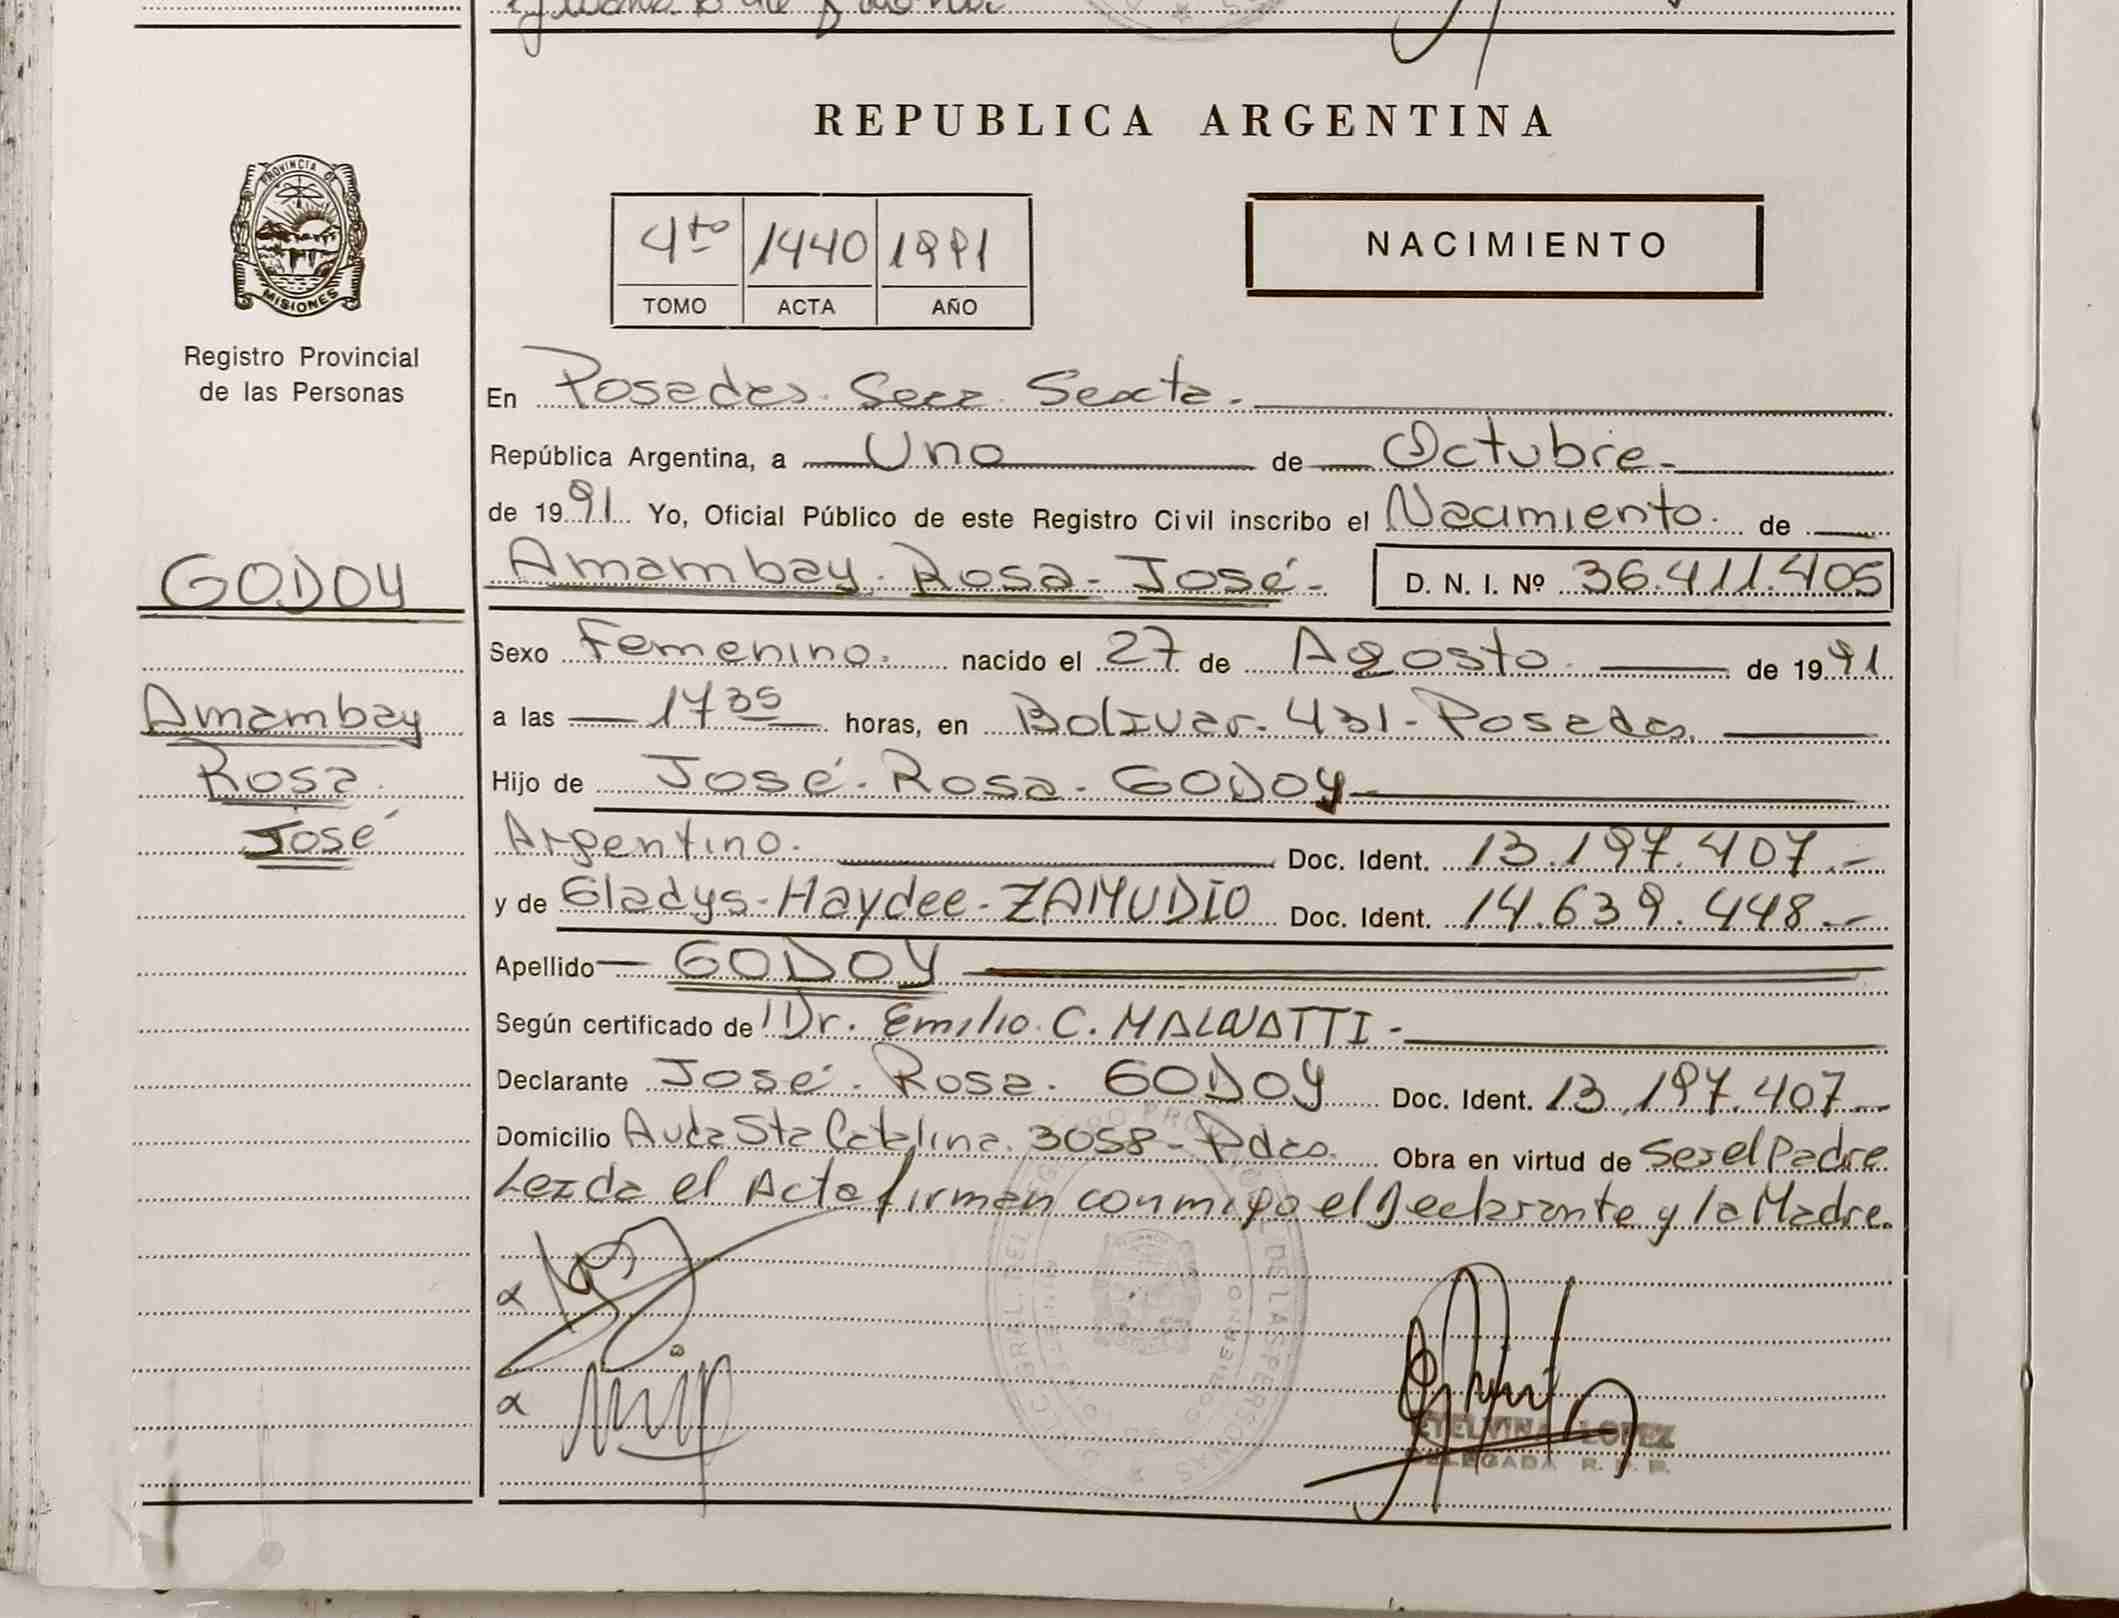 REPUBLICA ARGENTINA
PROVINCIA DE
MISIONES
Registro Provincial
de las Personas
4to 1440 1991
TOMO ACTA AÑO
NACIMIENTO
En Posadas. Secc. Sexta.
República Argentina, a Uno de Octubre.
de 1991. Yo, Oficial Público de este Registro Civil inscribo el Nacimiento. de
Amambay. Rosa. José. D. N. I. Nº 36.411.405
GODOY
Amambay
Rosa.
José
Sexo Femenino. nacido el 27 de Agosto. de 1991
a las 17 35 horas, en Bolivar. 431. Posadas.
Hijo de José. Rosa. GODOY
Argentino. Doc. Ident. 13.197.407.
y de Gladys. Haydee. ZAMUDIO Doc. Ident. 14.639.448.
Apellido GODOY
Según certificado de Dr. Emilio. C. MALNATTI.
Declarante José. Rosa. GODOY Doc. Ident. 13.197.407
Domicilio Avda Sta Catalina. 3058 - Pdas. Obra en virtud de Ser el Padre
Leida el Acta firman conmigo el Declarante y la Madre.
ETELVINA LOPEZ
DELEGADA R. P. P.